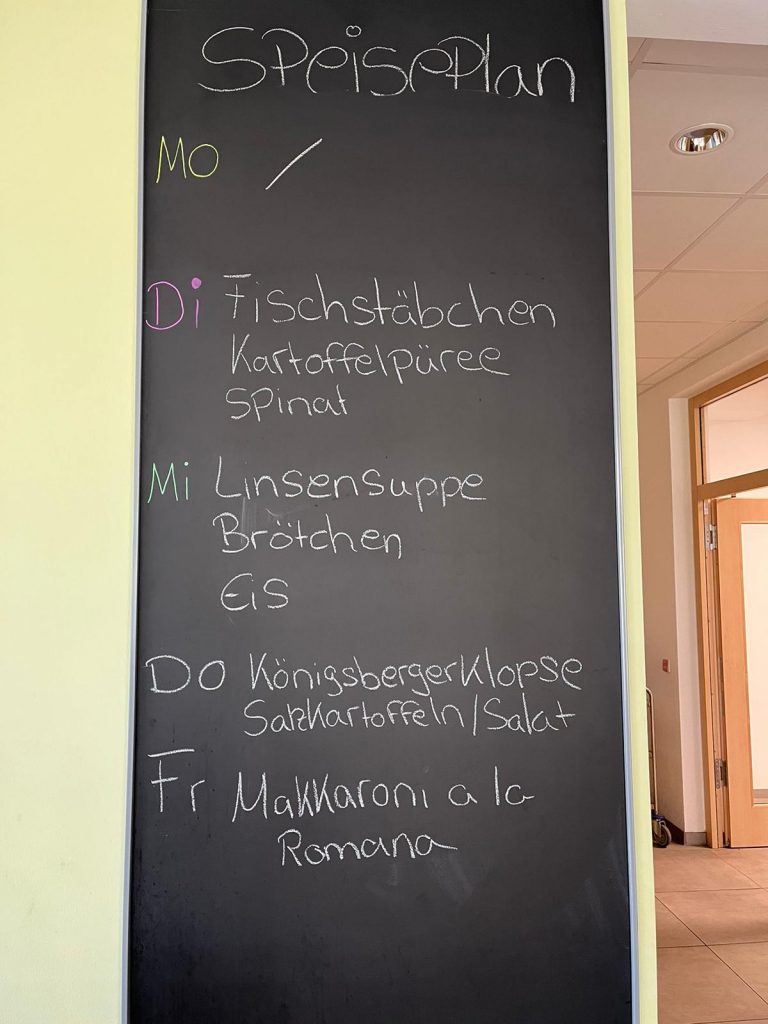 Speiseplan
Mo /
Di Fischstäbchen
Kartoffelpüree
Spinat
Mi Linsensuppe
Brötchen
Eis
Do Königsberger Klopse
Salzkartoffeln/Salat
Fr Makkaroni a la
Romana